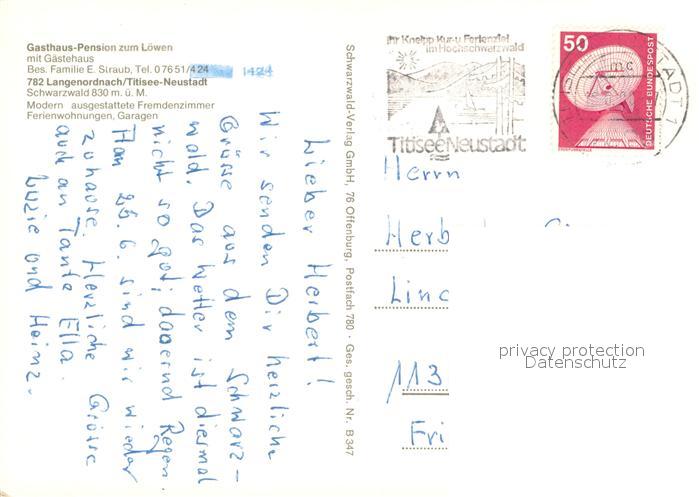 Gasthaus-Pension zum Löwen
mit Gästehaus
Bes. Familie E. Straub, Tel. 07651/424 1424
782 Langenordnach/Titisee-Neustadt
Schwarzwald 830 m. ü. M.
Modern ausgestattete Fremdenzimmer
Ferienwohnungen, Garagen
Lieber Herbert!
Wir senden Dir herzliche
Grüsse aus dem Schwarz-
wald. Das Wetter ist diesmal
nicht so gut; dauernd Regen
Am 25.6. sind wir wieder
zuhause. Herzliche Grüsse
auch an Tante Ella.
Luzie und Heinz.
Schwarzwald-Verlag GmbH, 76 Offenburg, Postfach 780 · Ges. gesch. Nr. B 347
Ihr Kneipp Kur- u. Ferienziel
im Hochschwarzwald
Titisee Neustadt
50
DEUTSCHE BUNDESPOST
Herrn
Herb
Linc
113
Fri
privacy protection
Datenschutz